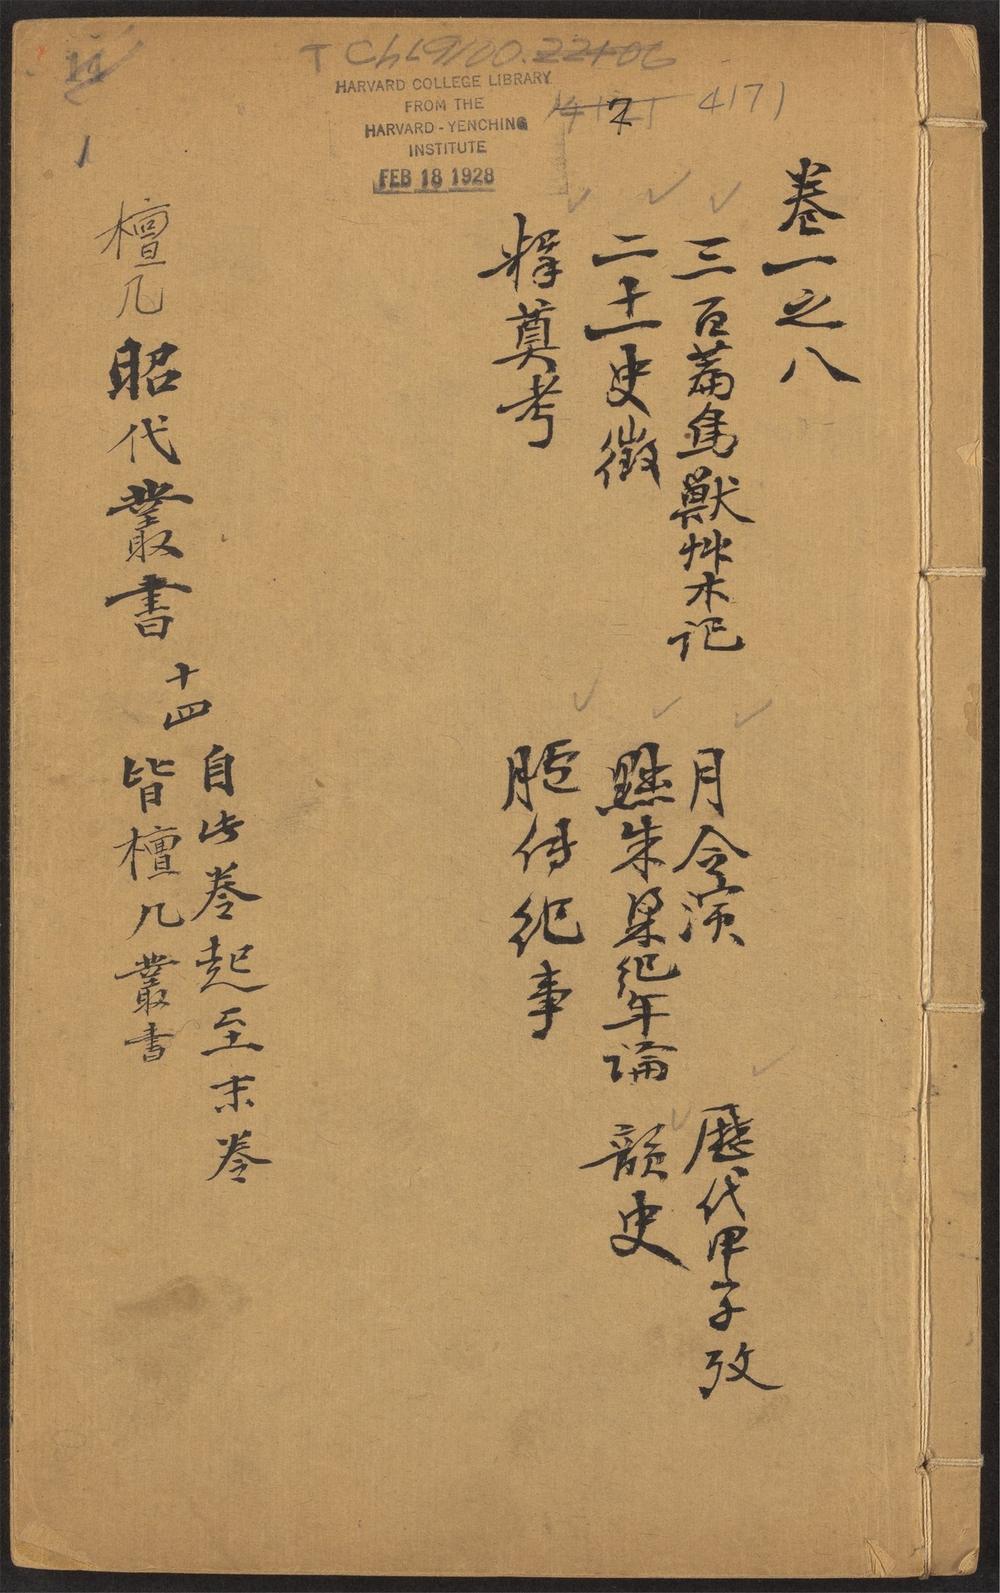 T Ch L 9100.22+06
HARVARD COLLEGE LIBRARY
FROM THE
HARVARD-YENCHING
INSTITUTE
FEB 18 1928
4171
7
1
卷一之八
三百篇鳥獸艸木記
月令演
歷代甲子攷
二十一史徵
黜朱梁紀年論
韻史
釋奠考
臚传紀事
檀几
昭代叢書
十四
自此卷起至末卷
皆檀几叢書